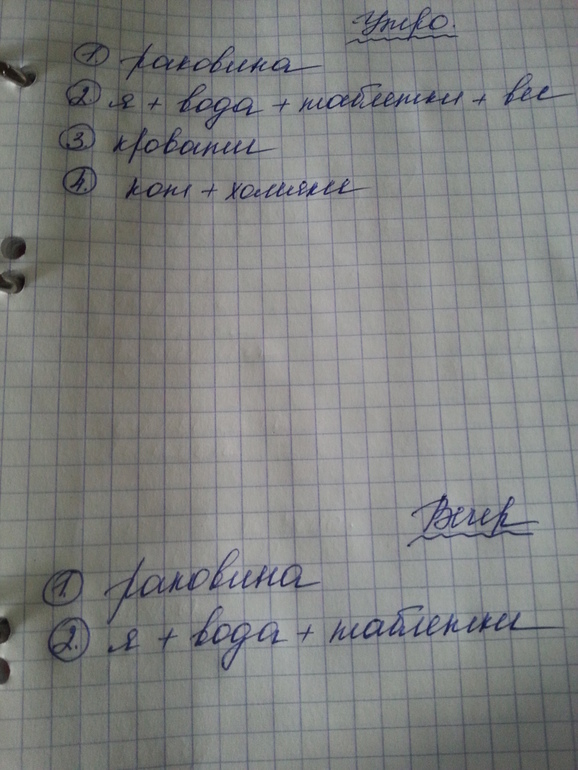 Утро.
1. раковина
2. я + вода + таблетки + вес
3. кровати
4. кот + хомяки
Вечер
1. раковина
2. я + вода + таблетки